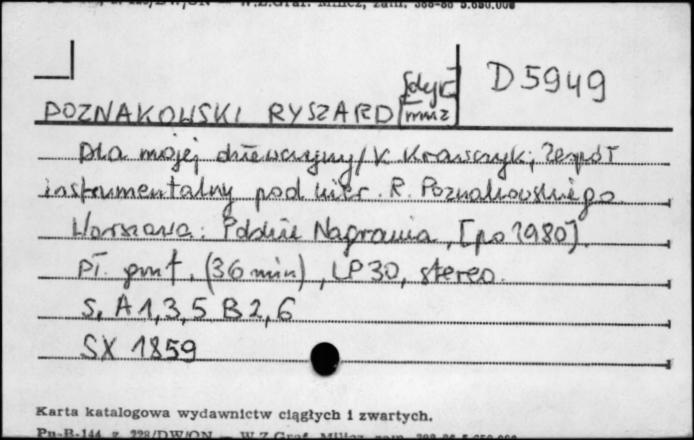 z. 228/DW/ON — W.Z.Graf. Milicz, zam. 388-86 5.650.000
D 5949
[dyr.
POZNAKOWSKI RYSZARD muz]
Dla mojej dziewczyny / K. Krawczyk; Zespół
instrumentalny pod kier. R. Poznakowskiego.
Warszawa: Polskie Nagrania, [po 1980].
Pł. gmf. (36 min), LP 30, stereo.
S. A 1,3,5 B 2,6
SX 1859
Karta katalogowa wydawnictw ciągłych i zwartych.
Pu-B-144, z. 228/DW/ON — W.Z.Graf. Milicz, zam. 388-86 5.650.000